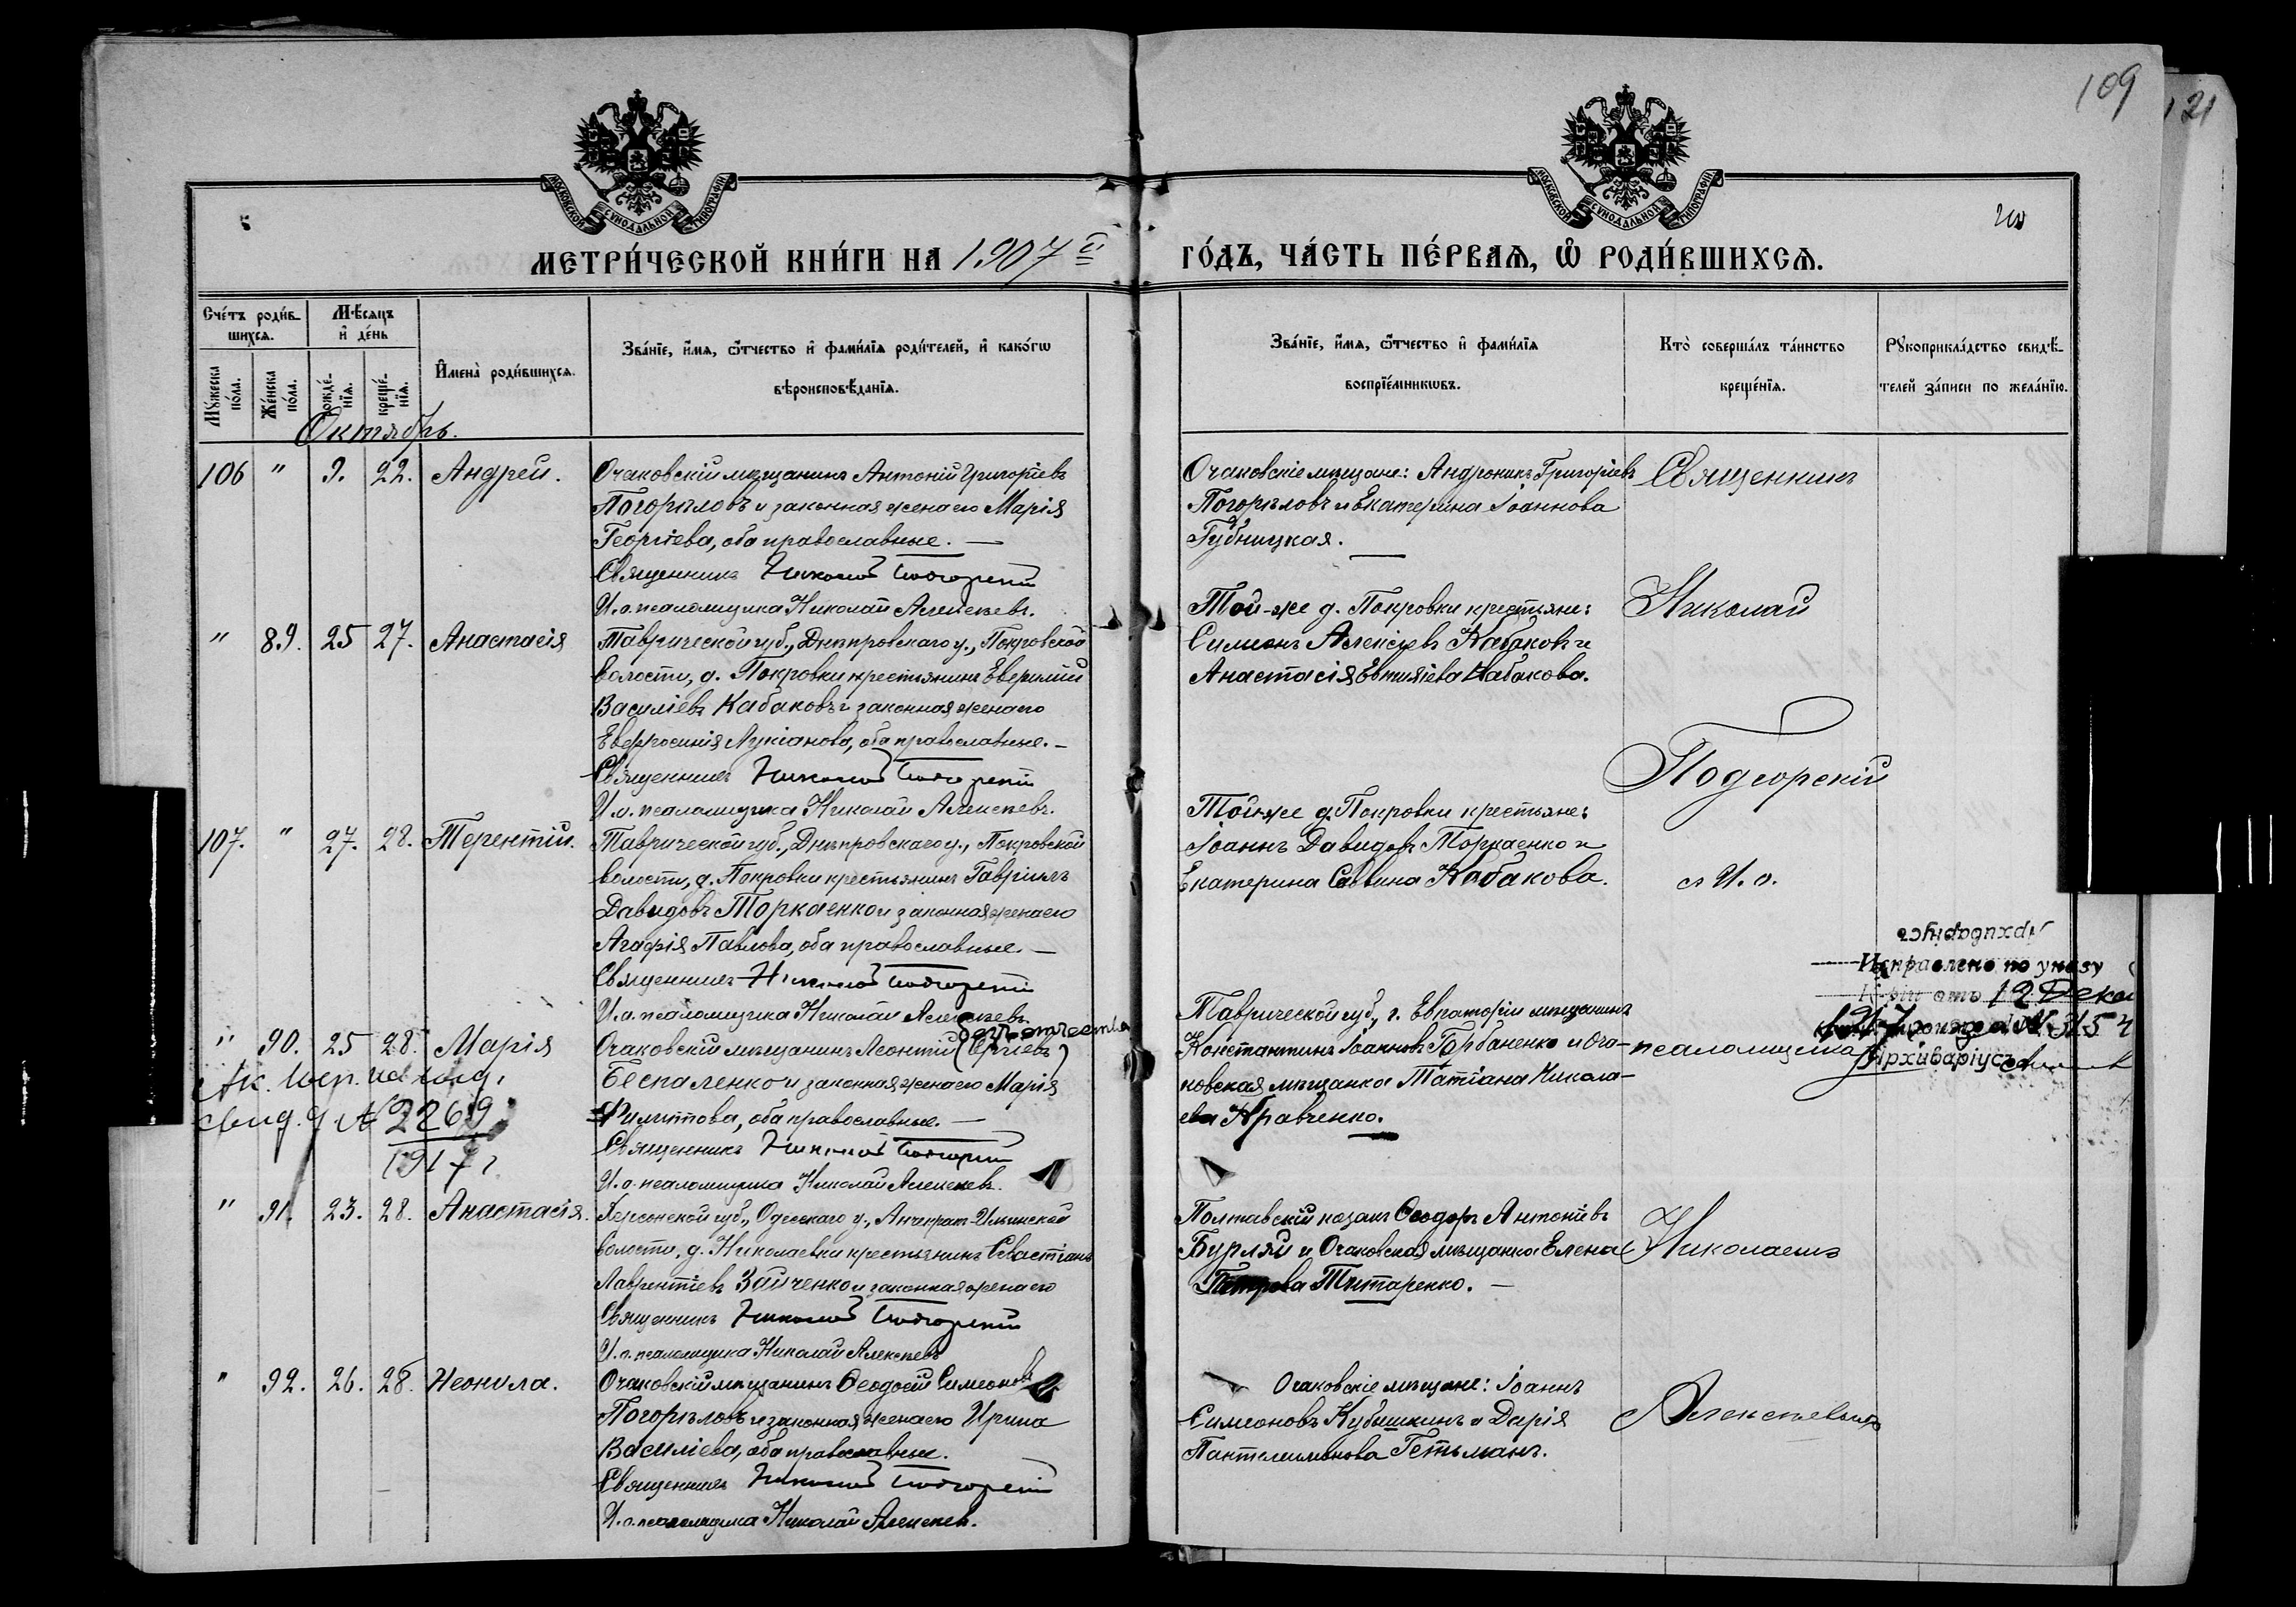 109
121
МОСКОВСКОЙ СУНОДАЛЬНОЙ ТИПОГРАФІИ
МОСКОВСКОЙ СУНОДАЛЬНОЙ ТИПОГРАФІИ
МЕТРИ́ЧЕСКОЙ КНИ́ГИ НА 1907й
ГО́ДЪ, ЧА́СТЬ ПЕ́РВАѦ, Ѡ҆ РОДИ́ВШИХСѦ.
Сче́тъ роди́вшихсѧ.
Мѣ́сѧцъ и҆ де́нь
Мꙋ́жеска по́ла.
Же́нска по́ла.
рожде́нїѧ.
креще́нїѧ.
И҆мена̀ роди́вшихсѧ.
Зва́нїе, и҆́мѧ, ѻ҆́тчество и҆ фами́лїѧ роди́телей, и҆ како́гѡ
вѣроисповѣ́данїѧ.
Зва́нїе, и҆́мѧ, ѻ҆́тчество и҆ фами́лїѧ
воспрїе́мникѡвъ.
Кто̀ соверша́лъ та́инство
креще́нїѧ.
Рꙋкоприкла́дство свидѣ́телей за́писи по жела́нїю.
Октябрь.
106 " 9. 22. Андрей.
Очаковскій мѣщанинъ Антоній Григоріевъ
Погорѣловъ и законная жена его Марія
Георгіева, оба православные. —
Священникъ Николай Подгорскій
И. о. псаломщика Николай Алексѣевъ.
Очаковскіе мѣщане: Андроникъ Григоріевъ
Погорѣловъ и Екатерина Іоаннова
Губницкая.
Священникъ
" 89. 25 27. Анастасія
Таврической губ., Днѣпровскаго у., Покровской
волости, д. Покровки крестьянинъ
Василіевъ Кабаковъ и законная жена его
Евфросинія Лукіанова, оба православные. —
Священникъ Николай Подгорскій
И. о. псаломщика Николай Алексѣевъ.
Той-же д. Покровки крестьяне:
Симеонъ Алексѣевъ Кабаковъ и
Анастасія Кабакова.
Николай
Подгорскій
107. " 27. 28. Терентій.
Таврической губ., Днѣпровскаго у., Покровской
волости, д. Покровки крестьянинъ Гавріилъ
Давидовъ Торкаенко и законная жена его
Агафія Павлова, оба православные. —
Священникъ Николай Подгорскій
И. о. псаломщика Николай Алексѣевъ.
Той-же д. Покровки крестьяне:
Іоаннъ Давидовъ Торкаенко и
Екатерина Саввина Кабакова.
съ И. о.
" 90. 25 28. Марія
2269
1917 г.
Очаковскій мѣщанинъ Леонтій (Сергіевъ)
Беспаленко и законная жена его Марія
Филиппова, оба православные. —
Священникъ Николай Подгорскій
И. о. псаломщика Николай Алексѣевъ.
Таврической губ., г. Евпаторіи мѣщанинъ
Константинъ Іоанновъ Горбаненко и Оча-
ковская мѣщанка Татіана Никола-
ева Кравченко.
псаломщика
Архиваріусъ
Исправлено по указу
от 12 Дека
Архиваріусъ
" 91. 23. 28. Анастасія.
Херсонской губ., Одесскаго у., Ильинской
волости, д. Николаевки крестьянинъ Севастіанъ
Лаврентіевъ Зайченко и законная жена его
Священникъ Николай Подгорскій
И. о. псаломщика Николай Алексѣевъ
Полтавскій козакъ Ѳеодоръ Антоніевъ
Бурляй и Очаковская мѣщанка Елена
Петрова Титаренко. —
Николаемъ
" 92. 26. 28. Неонила.
Очаковскій мѣщанинъ Ѳеодосій Симеоновъ
Погорѣловъ и законная жена его Ирина
Василіева, оба православные.
Священникъ Николай Подгорскій
И. о. псаломщика Николай Алексѣевъ.
Очаковскіе мѣщане: Іоаннъ
Симеоновъ Кубышкинъ и Дарія
Пантелеимонова Гетьманъ.
Алексѣевымъ